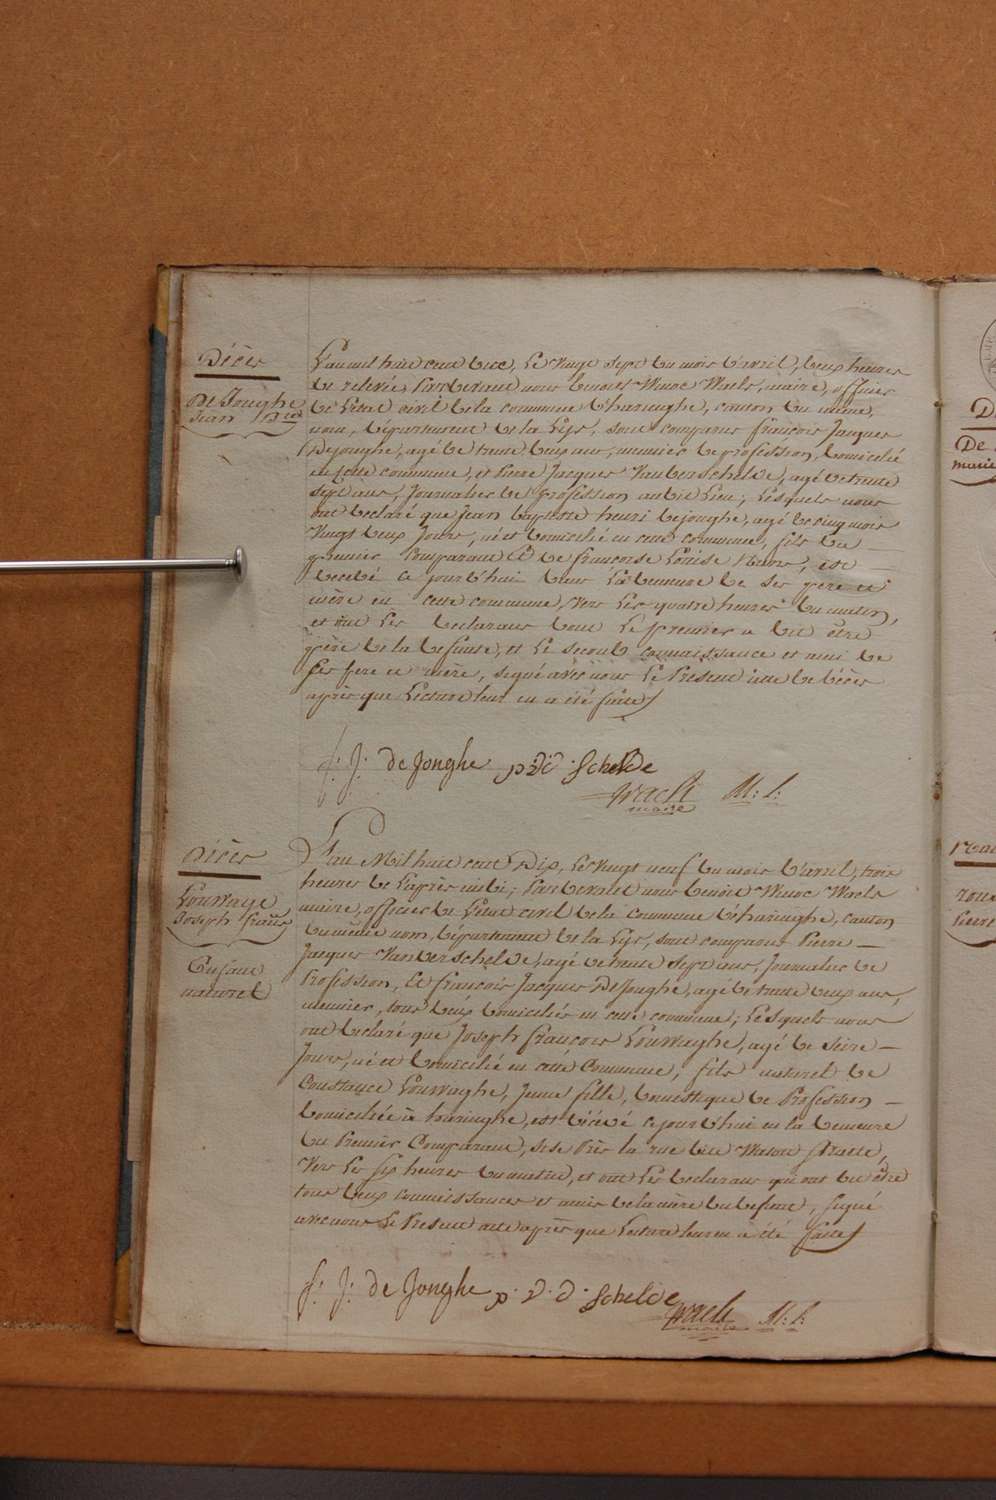 Décès
De Jonghe
Jean Bte
L'an mil huit cent dix, Le vingt sept du mois d'avril, deux heures
de relevée, Pardevant nous benoit Winoc Waels, maire, officier
de L'état civil de la commune d'haringhe, canton du même
nom, département de la Lys, sont comparus françois Jacques
Dejonghe, agé de trente deux ans, meunier de profession, domicilié
en Cette commune, et Pierre Jacques Vanderschelde, agé de trente
sept ans, Journalier de profession au dit Lieu; Lesquels nous
ont declaré que Jean baptiste henri dejonghe, agé de cinq mois
vingt deux Jours, né et domicilié en cette commune, fils du
premier Comparant & de françoise Louise, est
decedé ce jourd'hui dans La demeure de ses père et
mère en cette commune, vers Les quatre heures du matin,
et ont Les declarans dont Le premier a dit être
père de la defunte, et Le second connaissance et ami de
ses pere et mère, signé avec nous Le Present acte de décès
après que Lecture leur en a été faite
f: J: de Jonghe p: v: d: Schelde
Waels M: l:
maire
Décès
Louwage
Joseph franç
Enfant
naturel
L'an Mil huit cent Dix, Le vingt neuf du mois d'avril, trois
heures de L'après midi; Pardevant nous benoit Winoc Waels
maire, officier de L'état civil de la commune d'haringhe, canton
du même nom, département de la Lys, sont comparus Pierre
Jacques Vanderschelde, agé de trente sept ans, Journalier de
Profession, Et françois Jacques Dejonghe, agé de trente deux ans,
meunier, tous deux domiciliés en cette commune; Lesquels nous
ont declaré que Joseph françois Louwaghe, agé de seize
Jours, né et domicilié en cette Commune, fils naturel de
Constance Louwaghe, Jeune fille, domestique de Profession
domiciliée à haringhe, est décédé ce jourd'hui en la demeure
du Premier Comparant, sise Près la rue dite Watou Straete,
vers Les six heures du matin, et ont Les declarans qui ont dit être
tous deux connaissances et amis de la mère du defunt, signé
avec nous Le Present acte après que Lecture leur en a été faite
f: J: de Jonghe p: v: d: Schelde
Waels M: l:
maire
De
marie